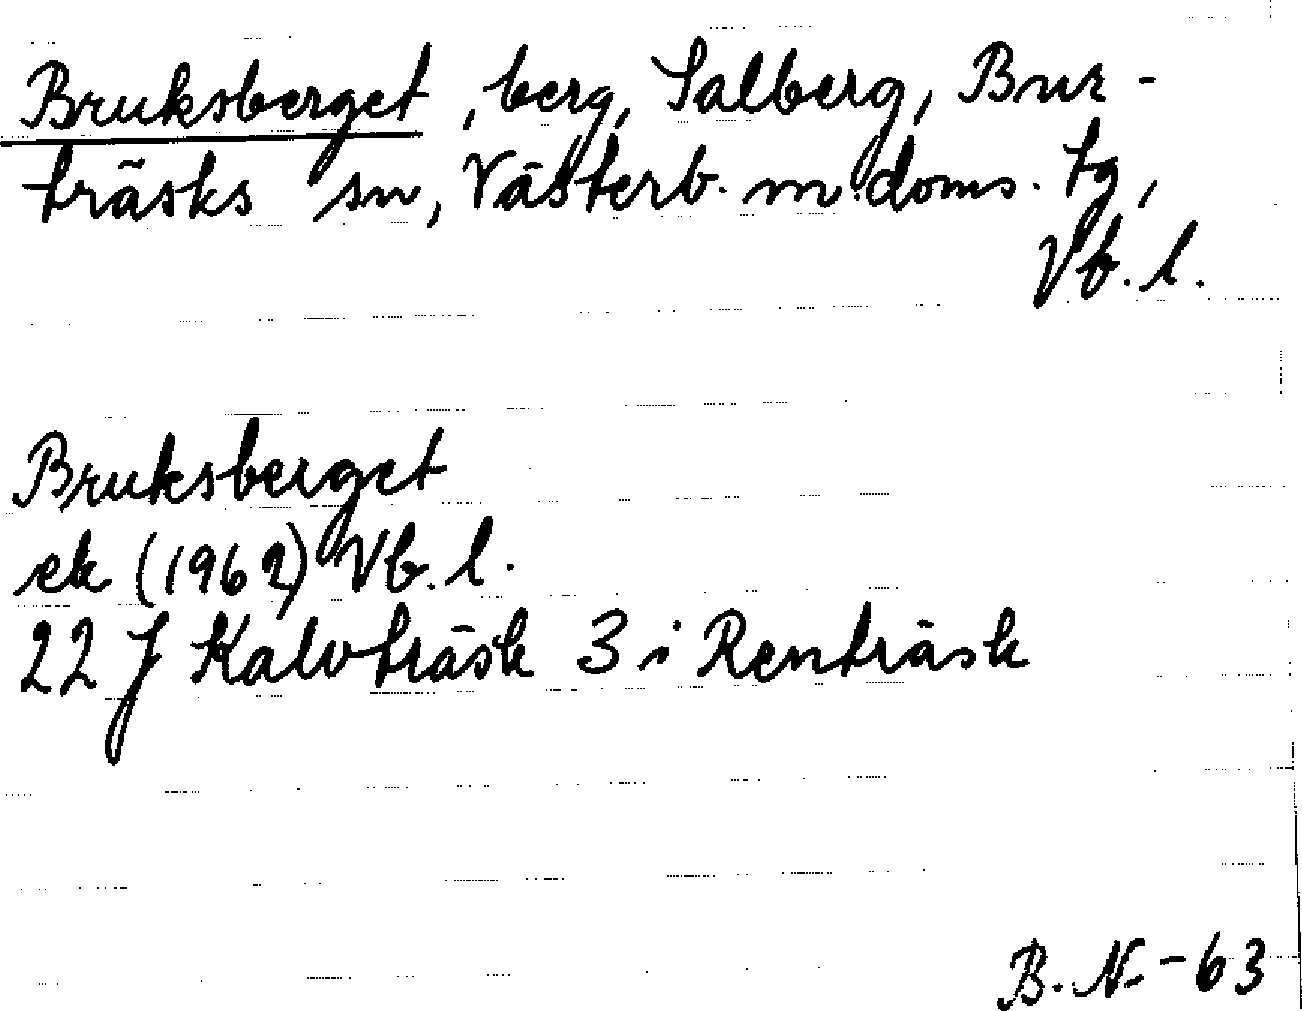 Bruksberget, berg, Salberg, Bur-
träsks sn, Västerb. m. doms. tg,
Vb. l.
Bruksberget
ek (1962) Vb. l.
22 J Kalvträsk 3 i Renträsk
B. N. -63